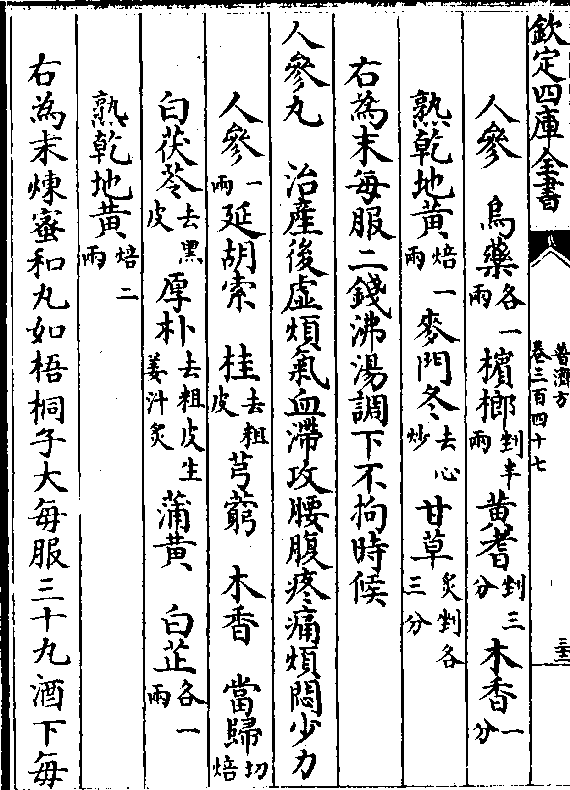 欽定四庫全書
普濟方
卷三百四十七
三十三
人參 烏藥各一兩 檳榔剉半兩 黄耆剉三分 木香一分
熟乾地黄焙一兩 麥門冬去心炒 甘草炙剉各三分
右為末每服二錢沸湯調下不拘時候
人參丸 治產後虛煩氣血滯攻腰腹疼痛煩悶少力
人參一兩 延胡索 桂去粗皮 芎藭 木香 當歸切焙
白茯苓去黑皮 厚朴去粗皮生姜汁炙 蒲黄 白芷各一兩
熟乾地黄焙二兩
右為末煉蜜和丸如梧桐子大每服三十九酒下每